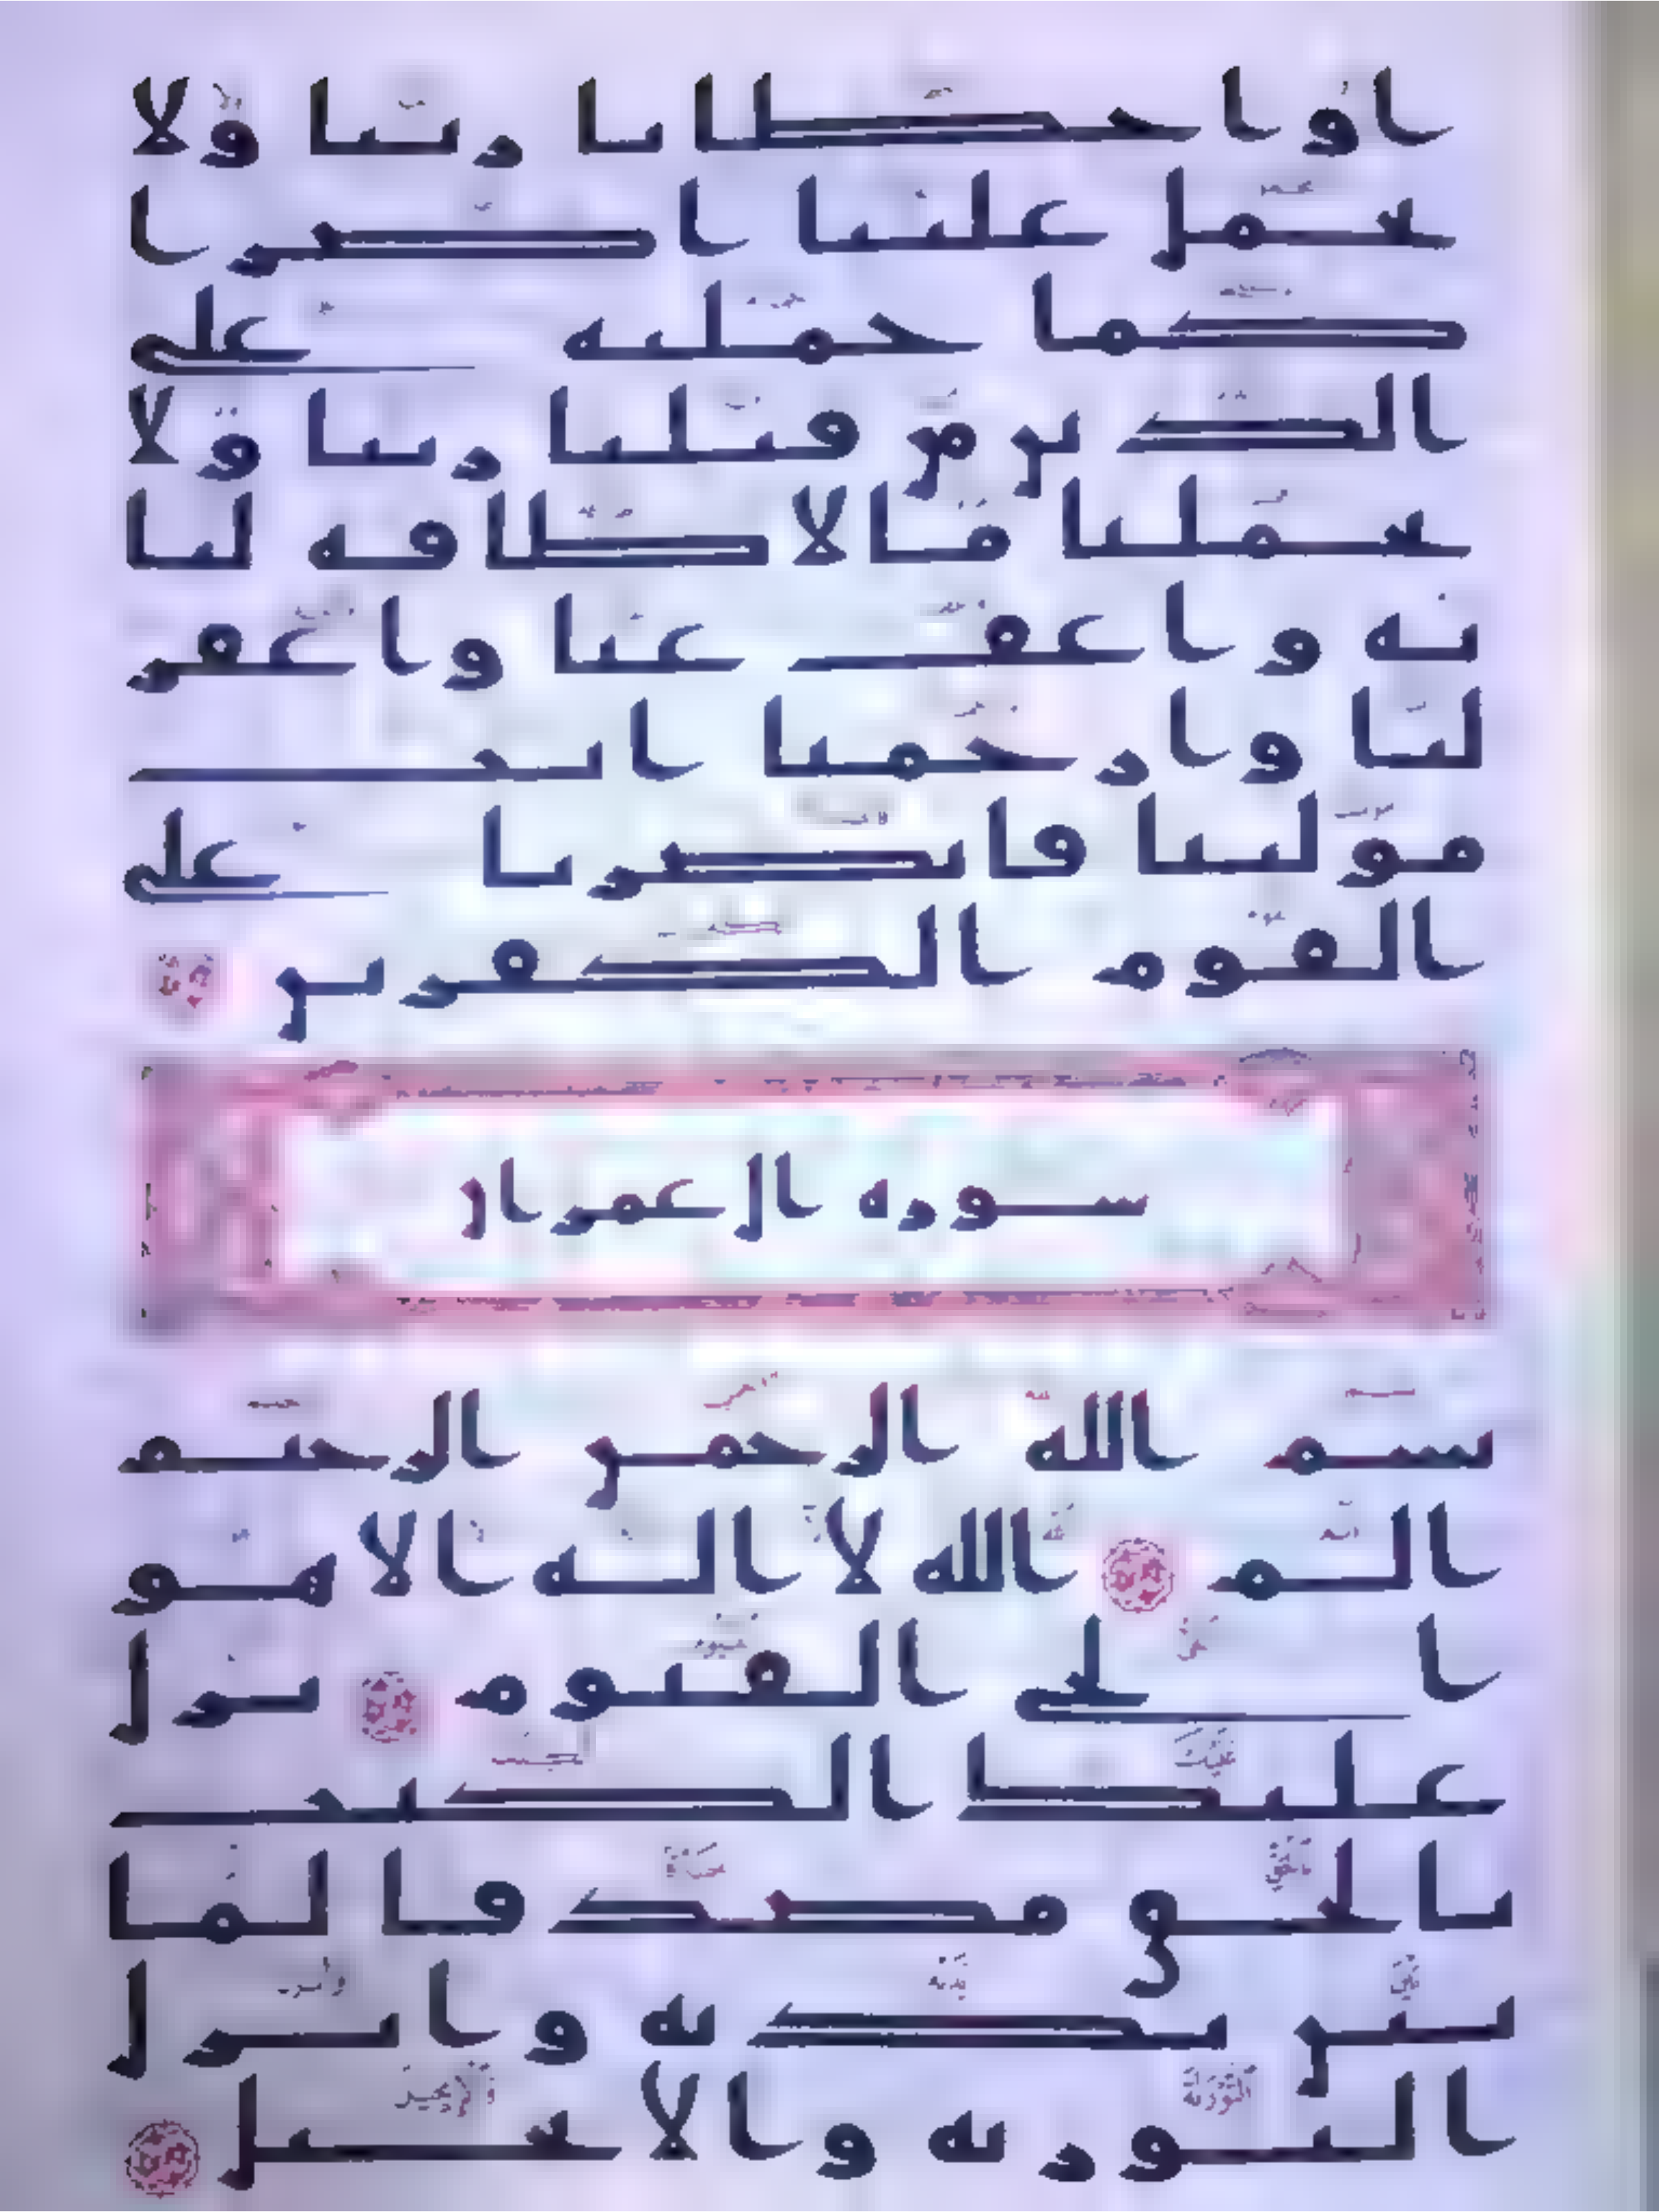 او اخطانا ربنا ولا
تحمل علينا اصرا
كما حملته على
الذين من قبلنا ربنا ولا
تحملنا ما لا طاقه لنا
به واعف عنا واغفر
لنا وارحمنا انت
مولينا فانصرنا على
القوم الكفرين
سوره ال عمران
بسم الله الرحمن الرحيم
الم الله لا اله الا هو
الحي القيوم نزل
عليك الكتب
بالحق مصدقا لما
بين يديه وانزل
التوريه والانجيل